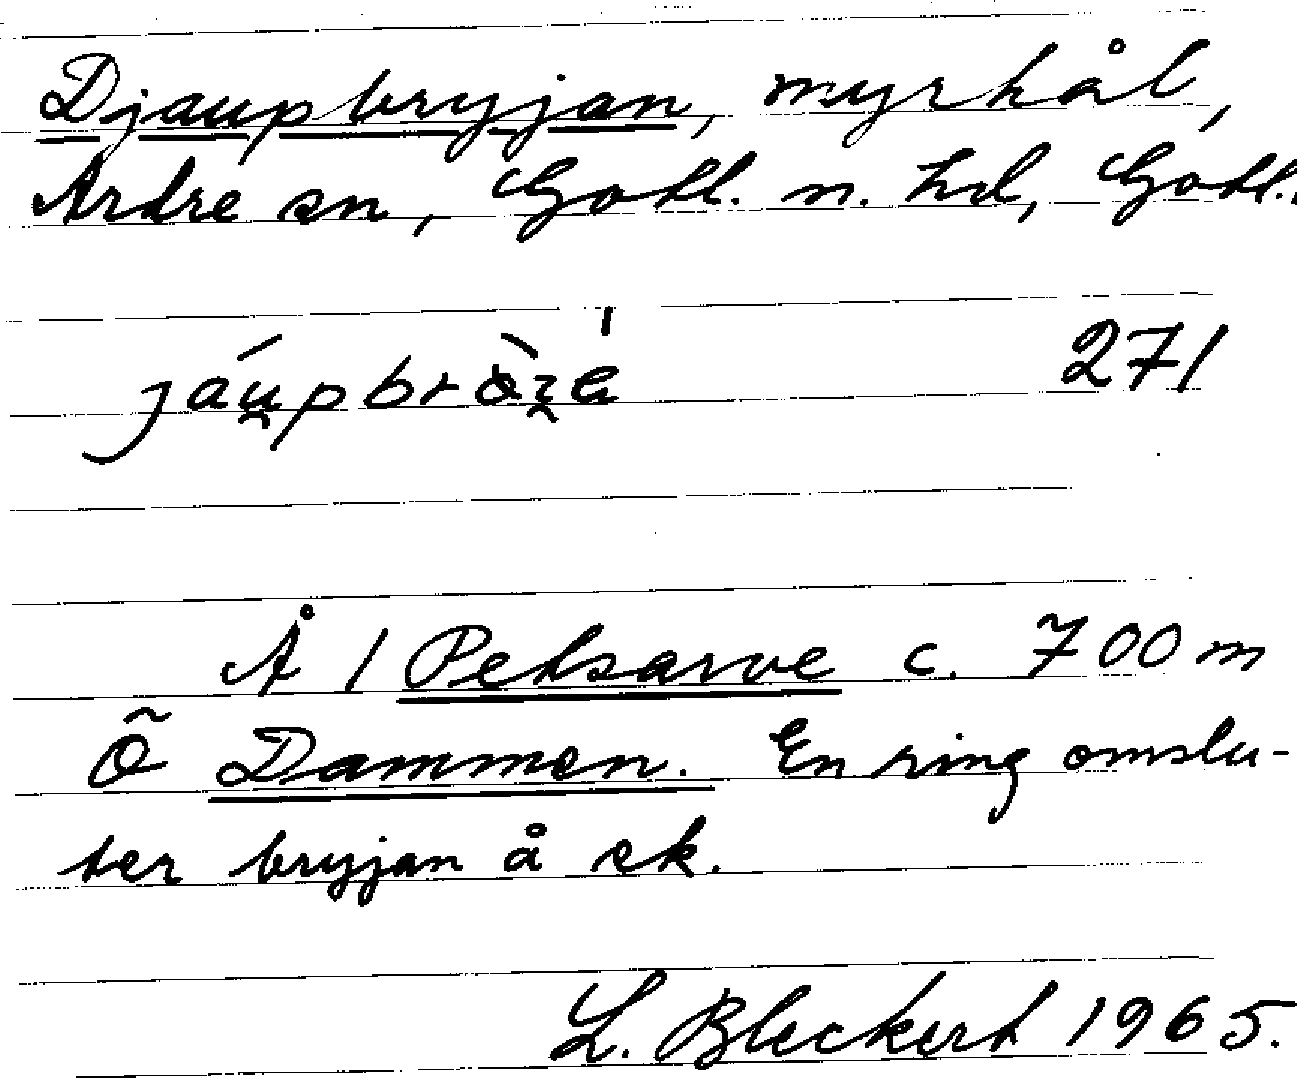 Djaupbryjan, myrhål,
Ardre sn, Gotl. n. hd, Gotl.
271
Å 1 Petsarve c. 700 m
Ö Dammen. En ring omslu-
ter bryjan å ek.
L. Bleckert 1965.